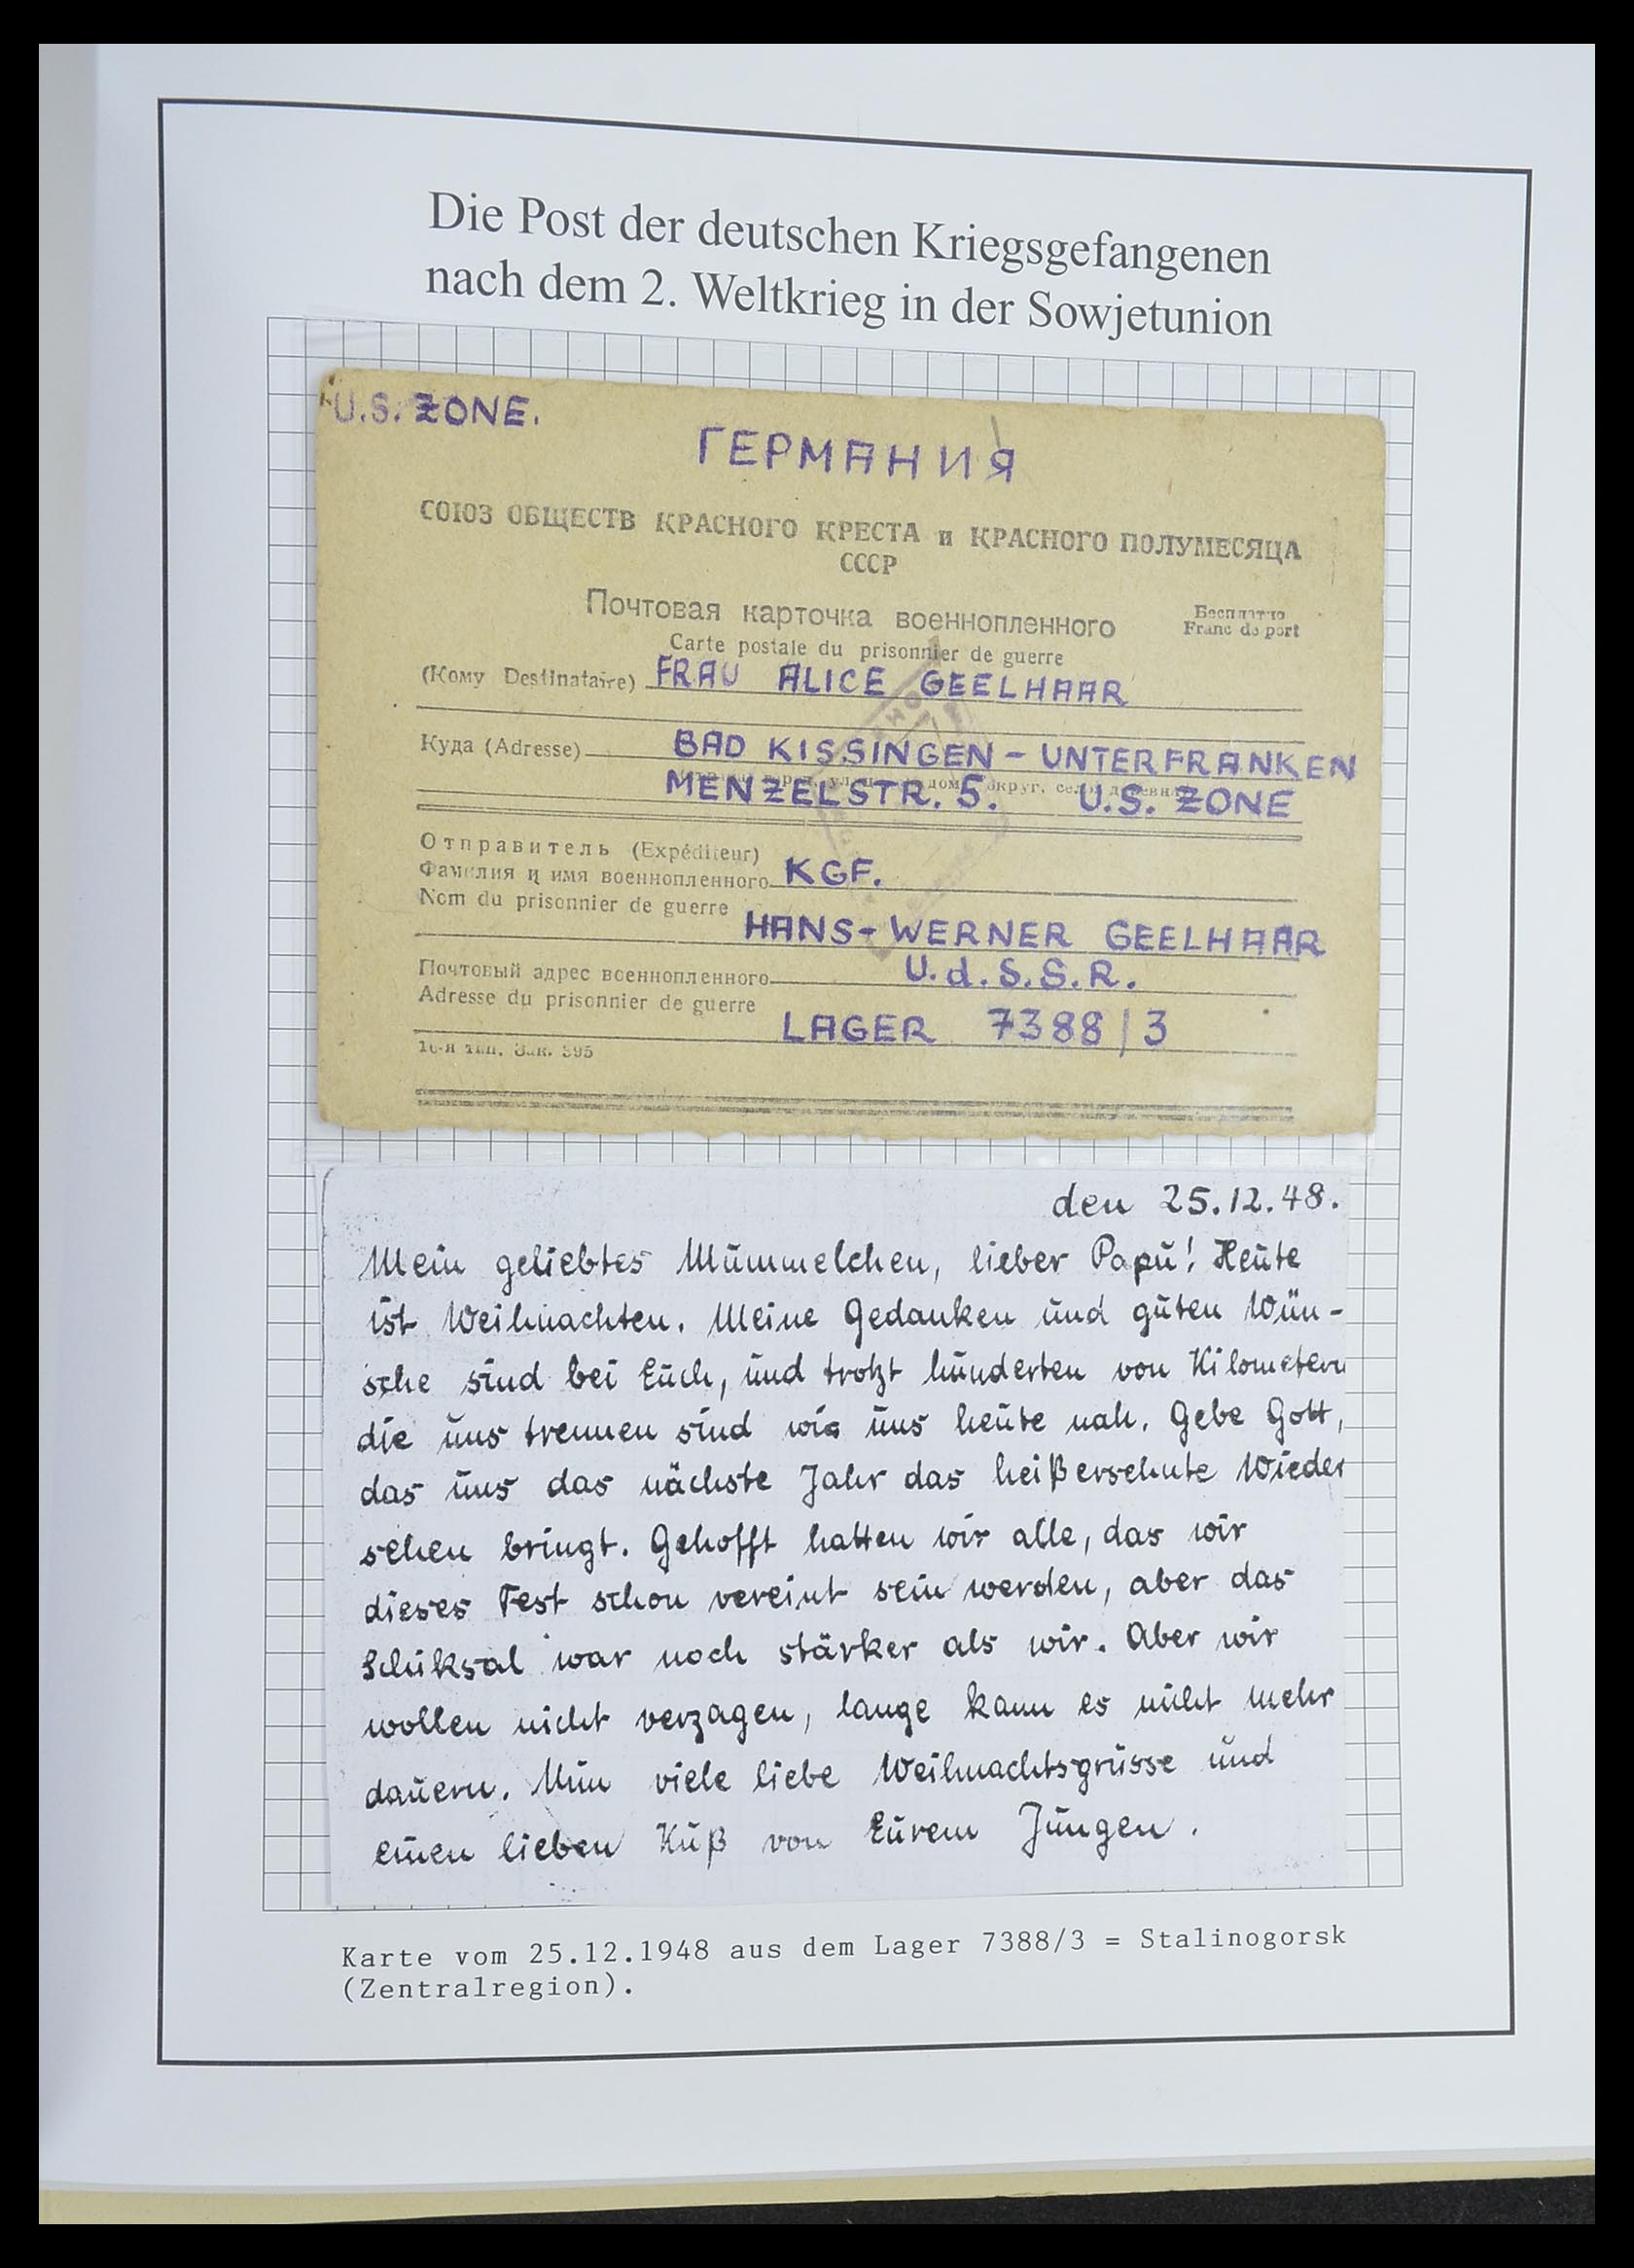 Die Post der deutschen Kriegsgefangenen
nach dem 2. Weltkrieg in der Sowjetunion
U.S. ZONE.
ГЕРМАНИЯ
СОЮЗ ОБЩЕСТВ КРАСНОГО КРЕСТА и КРАСНОГО ПОЛУМЕСЯЦА
СССР
Почтовая карточка военнопленного
Бесплатно
Carte postale du prisonnier de guerre
Franc de port
(Кому Destinataire) FRAU ALICE GEELHAAR
Куда (Adresse) BAD KISSINGEN - UNTERFRANKEN
MENZELSTR. 5. U.S. ZONE
Отправитель (Expéditeur)
Фамилия и имя военнопленного KGF.
Nom du prisonnier de guerre
HANS-WERNER GEELHAAR
Почтовый адрес военнопленного U.d.S.S.R.
Adresse du prisonnier de guerre
LAGER 7388/3
16-я тип. Зак. 395
den 25.12.48.
Mein geliebtes Mümmelchen, lieber Papu! Heute
ist Weihnachten. Meine Gedanken und guten Wün-
sche sind bei Euch, und trotzt hunderten von Kilometern
die uns trennen sind wir uns heute nah. Gebe Gott,
das uns das nächste Jahr das heißersehnte Wieder
sehen bringt. Gehofft hatten wir alle, das wir
dieses Fest schon vereint sein werden, aber das
Schiksal war noch stärker als wir. Aber wir
wollen nicht verzagen, lange kann es nicht mehr
dauern. Nun viele liebe Weihnachtsgrüsse und
einen lieben Kuß von Eurem Jungen.
Karte vom 25.12.1948 aus dem Lager 7388/3 = Stalinogorsk
(Zentralregion).